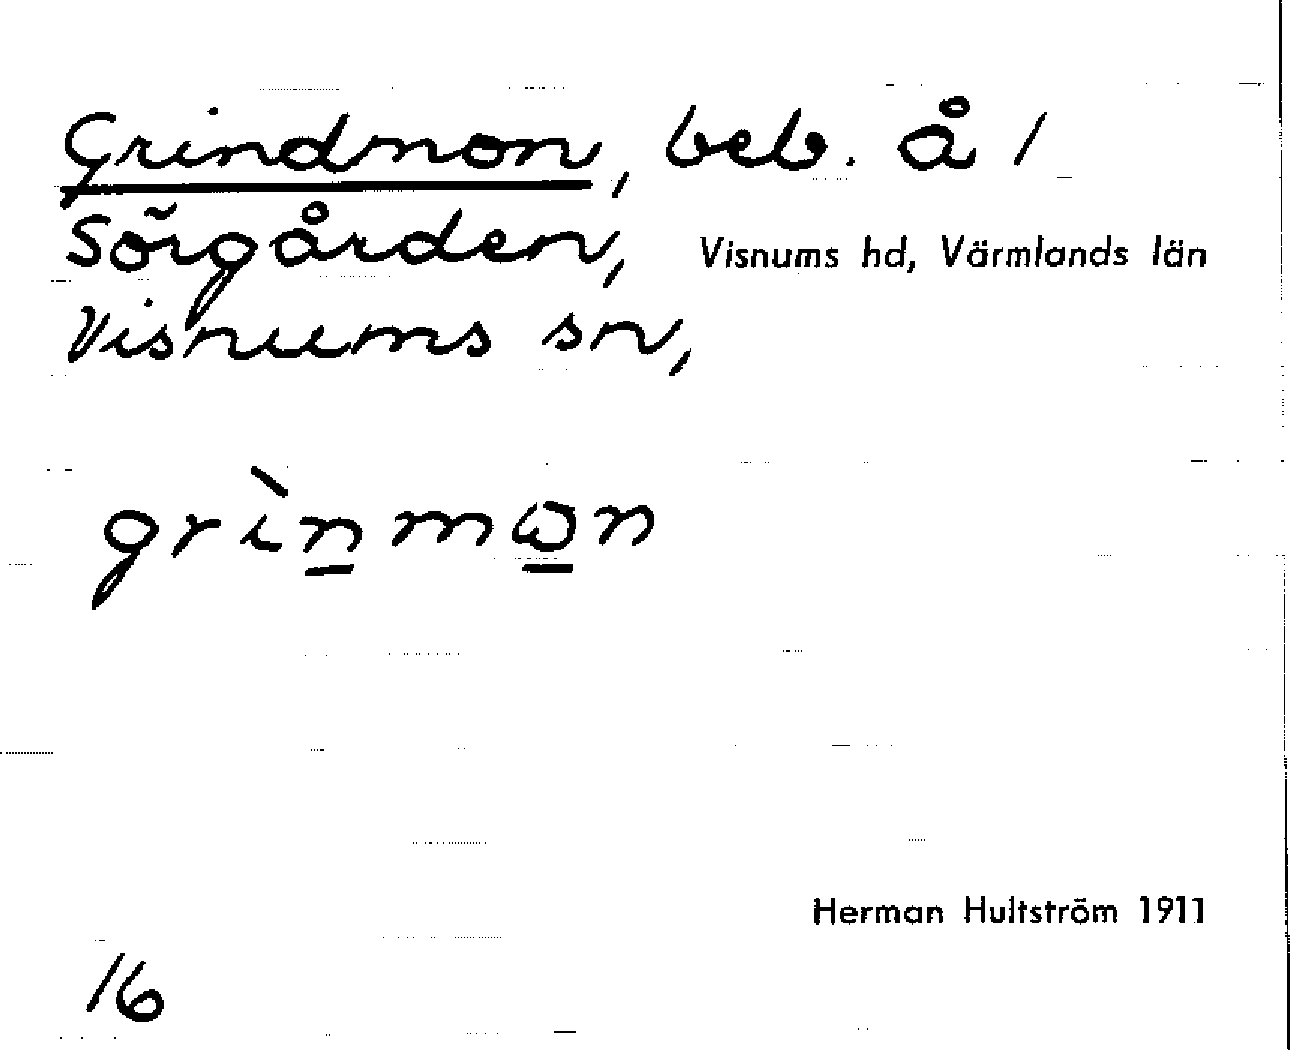 Grindmon, beb. å 1
Sörgården, Visnums hd, Värmlands län
Visnums sn,
grìn̲mω̲n
Herman Hultström 1911
16